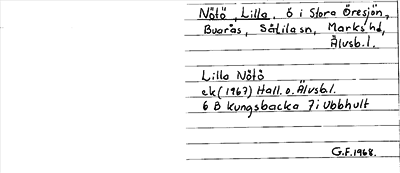 Nötö, Lilla, ö i Stora Öresjön,
Buarås, Sätila sn, Marks hd,
Älvsb.l.
Lilla Nötö
ek (1967) Hall. o. Älvsb.l.
6 B Kungsbacka 7i Ubbhult
G.F. 1968.